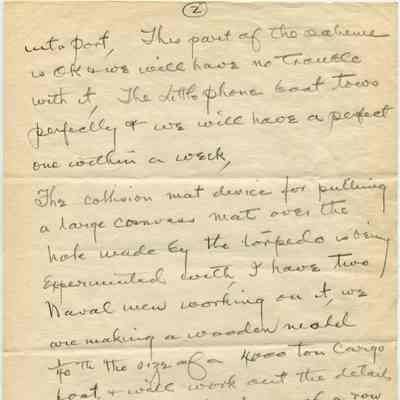 (2)
into port, This part of the scheme
is OK & we will have no trouble
with it, The little phone boat tows
perfectly & we will have a perfect
one within a week,
The collision mat device for pulling
a large canvass mat over the
hole made by the torpedo is being
experimented with, I have two
Naval men working on it, we
are making a wooden model
the size of a 4000 ton Cargo
boat & will work out the details
of a row